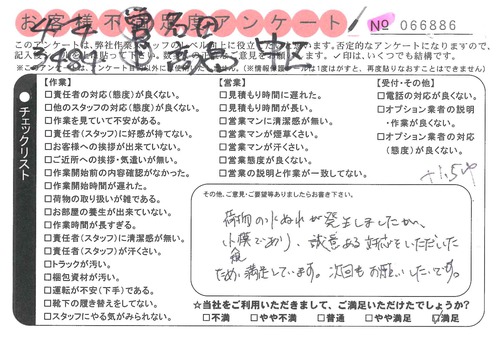 お客様不満足度アンケート
№ 066886
【作業】
□責任者の対応(態度)が良くない。
□他のスタッフの対応(態度)が良くない。
□作業を見ていて不安がある。
□責任者(スタッフ)に好感が持てない。
□お客様への挨拶が出来ていない。
□ご近所への挨拶・気遣いが無い。
□作業開始前の内容確認がなかった。
□作業開始時間が遅れた。
□荷物の取り扱いが雑である。
□お部屋の養生が出来ていない。
□作業時間が長すぎる。
□責任者(スタッフ)に清潔感が無い。
□責任者(スタッフ)が汗くさい。
□トラックが汚い。
□梱包資材が汚い。
□運転が不安(下手)である。
□靴下の履き替えをしてない。
□スタッフにやる気がみられない。
【営業】
□見積もり時間に遅れた。
□見積もり時間が長い。
□営業マンに清潔感が無い。
□営業マンが煙草くさい。
□営業マンが汗くさい。
□営業態度が良くない。
□営業の説明と作業が一致してない。
【受付・その他】
□電話の対応が良くない。
□オプション業者の説明
・作業が良くない。
□オプション業者の対応
(態度)が良くない。
●チェックリスト
その他、ご意見・ご要望等ありましたらお書き下さい。
荷物の水ぬれが発生しましたが、
小規模であり、誠意ある対応をいただいた
ため、満足しています。次回もお願いしたいです。
☆当社をご利用いただきまして、ご満足いただけたでしょうか?
□不満 □やや不満 □普通 □やや満足 ☑満足